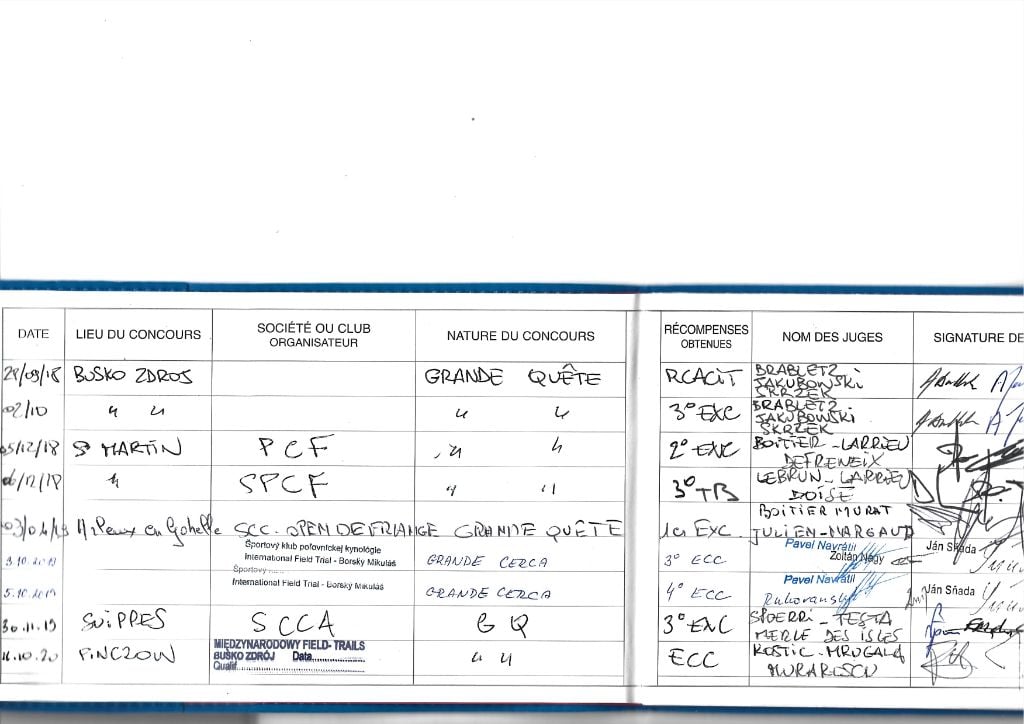 DATE LIEU DU CONCOURS SOCIÉTÉ OU CLUB ORGANISATEUR NATURE DU CONCOURS RÉCOMPENSES OBTENUES NOM DES JUGES SIGNATURE DE
28/09/18 BUSKO ZDROJ GRANDE QUÊTE RCACIT BRABLETZ
JAKUBOWSKI
SKRZEK
02/10 " " " " 3° EXC BRABLETZ
JAKUBOWSKI
SKRZEK
05/12/18 St MARTIN PCF " " 2° EXC BOITIER-LARRIEU
DEFRENEIX
06/12/18 " SPCF " " 3° TB LEBRUN-LARRIEU
DOISE
BOITIER MURAT
03/04/19 en Gohelle SCC-OPEN DE FRANCE GRANDE QUÊTE 1er EXC JULIEN-MARGAUD
Športový klub poľovníckej kynológie
International Field Trial - Borský Mikuláš
3.10.2019 GRANDE CERCA 3° ECC Pavel Navrátil
Zoltán Nagy
Ján Sňada
Športový
International Field Trial - Borský Mikuláš
5.10.2019 GRANDE CERCA 4° ECC Pavel Navrátil
Ján Sňada
30.11.19 SUIPPES SCCA GQ 3° EXC SPOERRI-TESTA
MERLE DES ISLES
11.10.20 PINCZOW MIĘDZYNARODOWY FIELD-TRAILS
BUSKO ZDRÓJ Data
Qualif.
" " ECC ROSTIC-MRUGALA